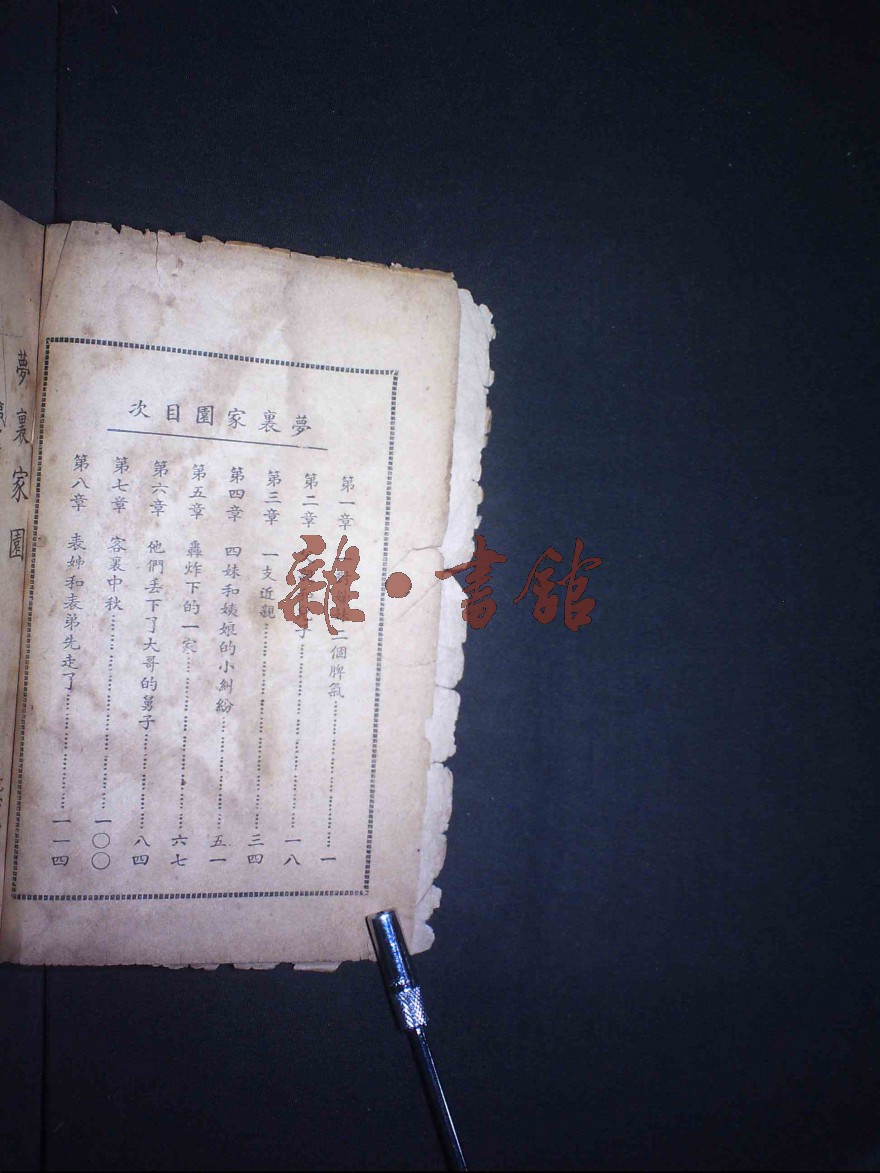 夢裏家園目次
第一章 二個脾氣……一
第二章 子……一八
第三章 一支近親……三四
第四章 四妹和姨娘的小糾紛……五一
第五章 轟炸下的一家……六七
第六章 他們丢下了大哥的舅子……八四
第七章 客裏中秋……一〇〇
第八章 表姊和表弟先走了……一一四
夢裏家園
雜·書館